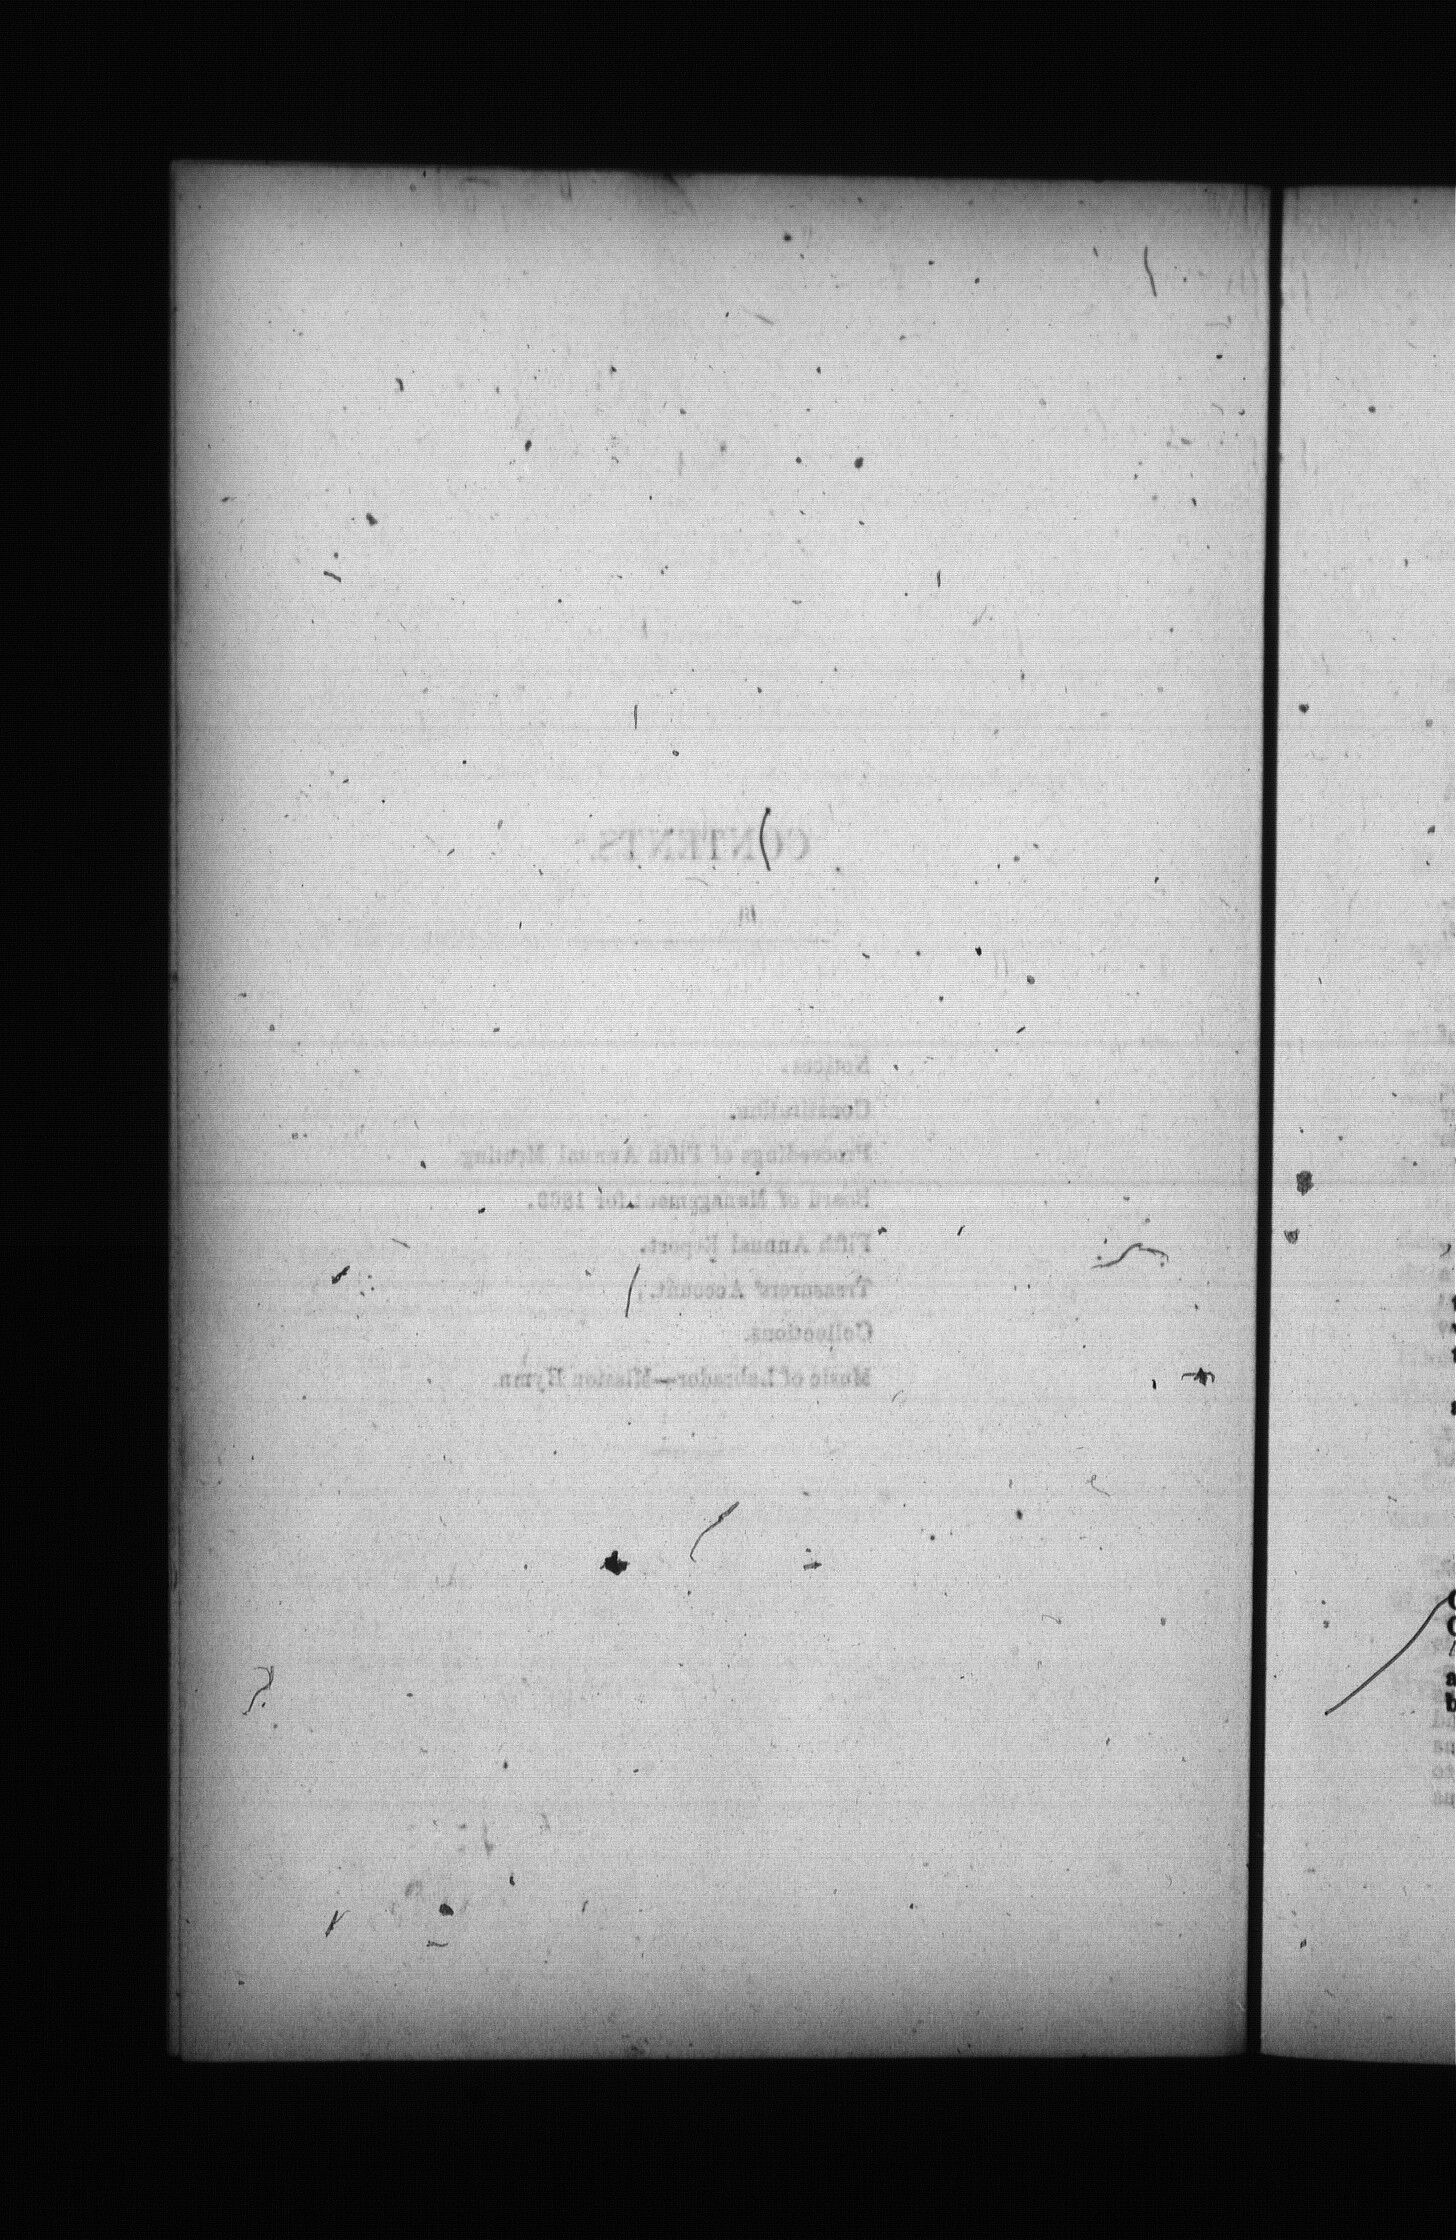 CONTENTS.
Notices.
Constitution.
Proceedings of Fifth Annual Meeting.
Board of Management for 1869.
Fifth Annual Report.
Treasurers' Account.
Collections.
Music of Labrador—Mission Hymn.